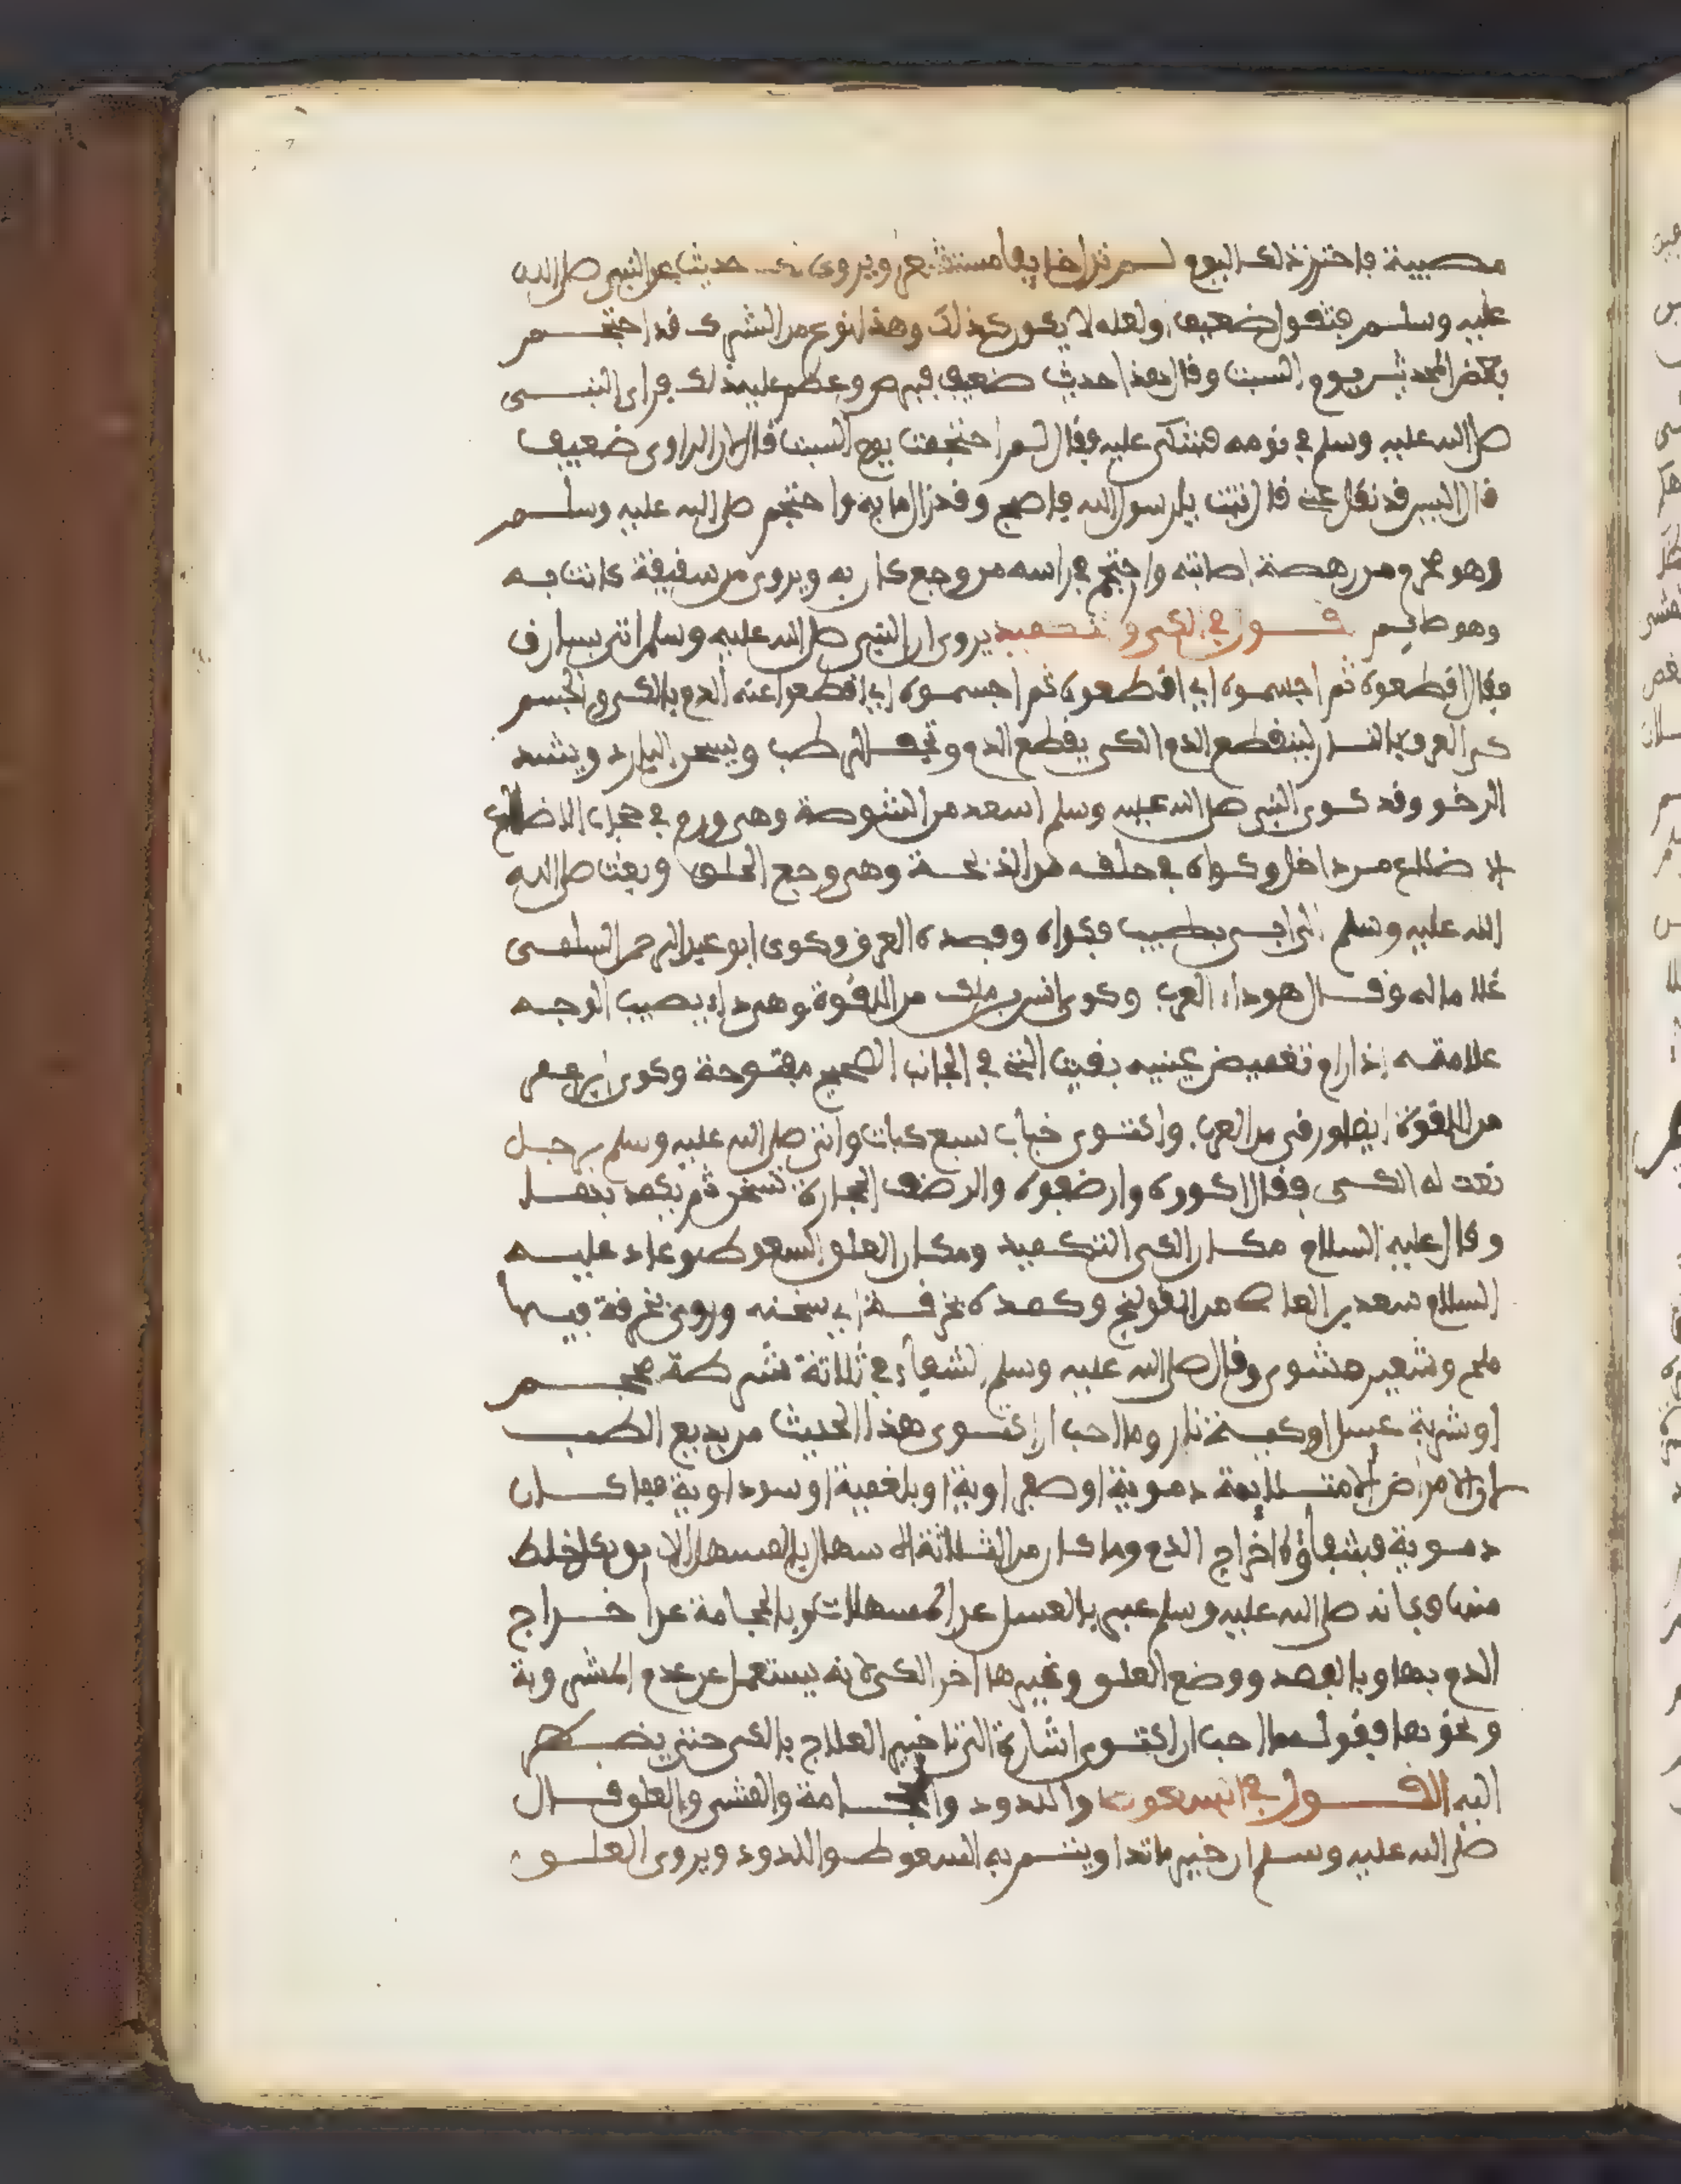 مصيبة فاحترز ذلك اليوم لم تر اخا يفا مستشعر ويروى حديث عن النبي صلى الله
عليه وسلم فتقول ضعيف ولعله لا يكون كذلك وهذا نوع من الشرك قد احتجم
بعض المحدثين يوم السبت وقال هذا حديث ضعيف فبرص وعظم عليه ذلك فراى النبي
صلى الله عليه وسلم في نومه فشكى عليه فقال لم احتجمت يوم السبت قال لان الراوى ضعيف
قال اليس قد نقل عني قال تبت يا رسول الله فاصبح وقد زال ما به واحتجم صلى الله عليه وسلم
وهو محرم من رهصة اصابته واحتجم في راسه من وجع كان به ويروى من شقيقة كانت به
وهو صايم قول في الكي والتكميد يروى ان النبي صلى الله عليه وسلم اتي بسارق
فقال اقطعوه ثم احسموه اي اقطعوه ثم احسموه اي اقطعوا عنه الدم بالكي والحسم
كي العروق بالنار لينقطع الدم الكي يقطع الدم ويجفف الرطب ويسخن البارد ويشد
الرخو وقد كوى النبي صلى الله عليه وسلم اسعد من الشوصة وهي ورم في حجاب الاضلاع
الاضلاع من داخل وكواه في حلقه من الذبحة وهي وجع الحلق وبعث صلى الله
الله عليه وسلم الى ابي بطبيب فكواه وفصده العرق وكوى ابو عبد الرحمن السلمي
غلاما له وقال هو دواء العرب وكوى انس بن ملك من اللقوة وهي داء يصيب الوجه
علامته اذا رام تغميض عينيه بقيت التي في الجانب الصحيح مفتوحة وكوى ابن عمر
من اللقوة ايضا ورقي من العرب واكتوى خباب سبع كيات واتي صلى الله عليه وسلم برجل
نعت له الكي فقال اكووه وارضفوه والرضف الحجارة تسخن ثم يكمد بها
وقال عليه السلام مكان الكي التكميد ومكان العلق السعوط وعاد عليه
السلام سعد بن ابي العاص من القولنج وكمده بخرقة اي سخنه وروي بخرقة فيها
ملح وشعير مشوى وقال صلى الله عليه وسلم الشفاء في ثلاثة شرطة محجم
او شربة عسل او كية نار وما احب ان اكتوى هذا الحديث من بديع الطب
لان الامراض الامتلايية دموية او صفراوية او بلغمية او سوداوية فما كان
دموية فشفاؤه اخراج الدم وما كان من الثلاثة الاسهال بالمسهل اللايق بكل خلط
منها وكانه صلى الله عليه وسلم عبر بالعسل عن المسهلات وبالحجامة عن اخراج
الدم بها وبالفصد ووضع العلق وغيرها اخر الكي لانه يستعمل عن عدم المشروبة
ونحوها وقوله ما احب ان اكتوى اشارة الى تاخير العلاج بالكي حتى يضطر
اليه القول في السعوط واللدود والحجامة والمشي والعلق قال
صلى الله عليه وسلم ان خير ما تداويتم به السعوط واللدود ويروى العلق